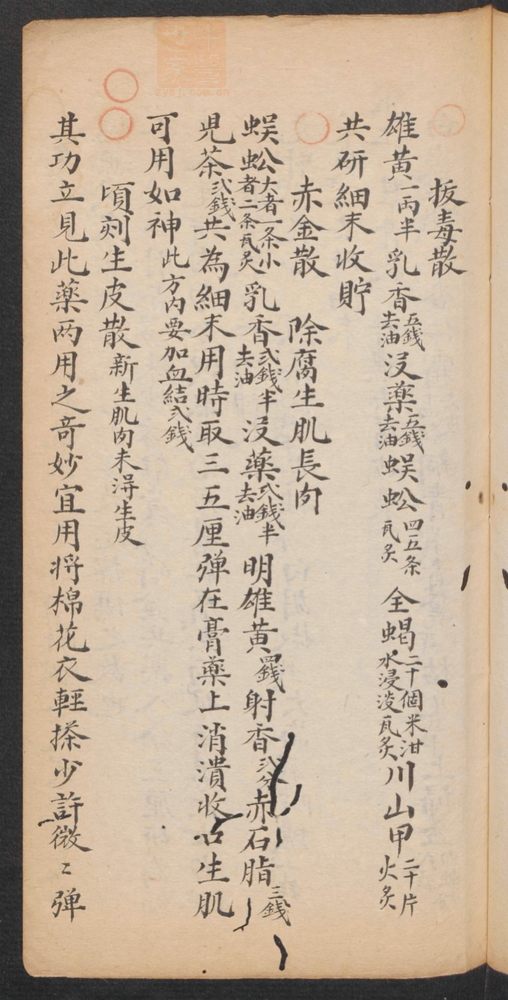 拔毒散
雄黃一两半 乳香五錢去油 沒藥五錢去油 蜈蚣四五条瓦炙 全蝎二十個米泔水浸淡瓦炙 川山甲二十片火炙
共研細末收貯
赤金散 除腐生肌長肉
蜈蚣大者一条小者二条瓦炙 乳香弍錢半去油 沒藥弍錢半去油 明雄黃四錢 射香弍分 赤石脂三錢
児茶弍錢 共為細末用時取三五厘弹在膏藥上消潰收口生肌
可用如神 此方内要加血結弍錢
頃刻生皮散 新生肌肉未淂生皮
其功立見此藥两用之奇妙宜用将棉花衣輕搽少許微〻弹